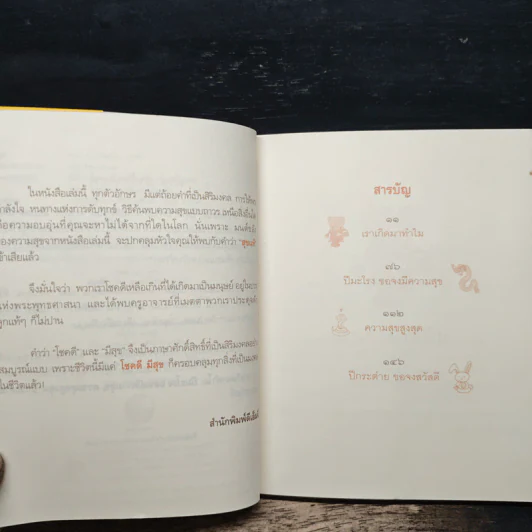 ในหนังสือเล่มนี้ ทุกตัวอักษร มีแต่ถ้อยคำที่เป็นสิริมงคล การให้
กำลังใจ หนทางแห่งการดับทุกข์ วิธีค้นพบความสุขแบบถาวร เหนือสิ่งอื่นใด
คือความอบอุ่นที่คุณจะหาไม่ได้จากที่ใดในโลก นั่นเพราะ มนต์ขลัง
ของความสุขจากหนังสือเล่มนี้ จะปกคลุมหัวใจคุณให้พบกับคำว่า
เข้าเสียแล้ว
จึงมั่นใจว่า พวกเราโชคดีเหลือเกินที่ได้เกิดมาเป็นมนุษย์ อยู่ใน
แห่งพระพุทธศาสนา และได้พบครูอาจารย์ที่เมตตาพวกเราประดุจ
ลูกแท้ๆ ก็ไม่ปาน
คำว่า "โชคดี" และ "มีสุข" จึงเป็นภาษาศักดิ์สิทธิ์ที่เป็นสิริมงคล
สมบูรณ์แบบ เพราะชีวิตนี้มีแค่ โชคดี มีสุข ก็ครอบคลุมทุกสิ่งที่เป็น
ในชีวิตแล้ว!
สำนักพิมพ์
สารบัญ
๑๑
เราเกิดมาทำไม
๗๖
ปีมะโรง ขอจงมีความสุข
๑๑๒
ความสุขสูงสุด
๑๔๖
ปีกระต่าย ขอจงสวัสดี